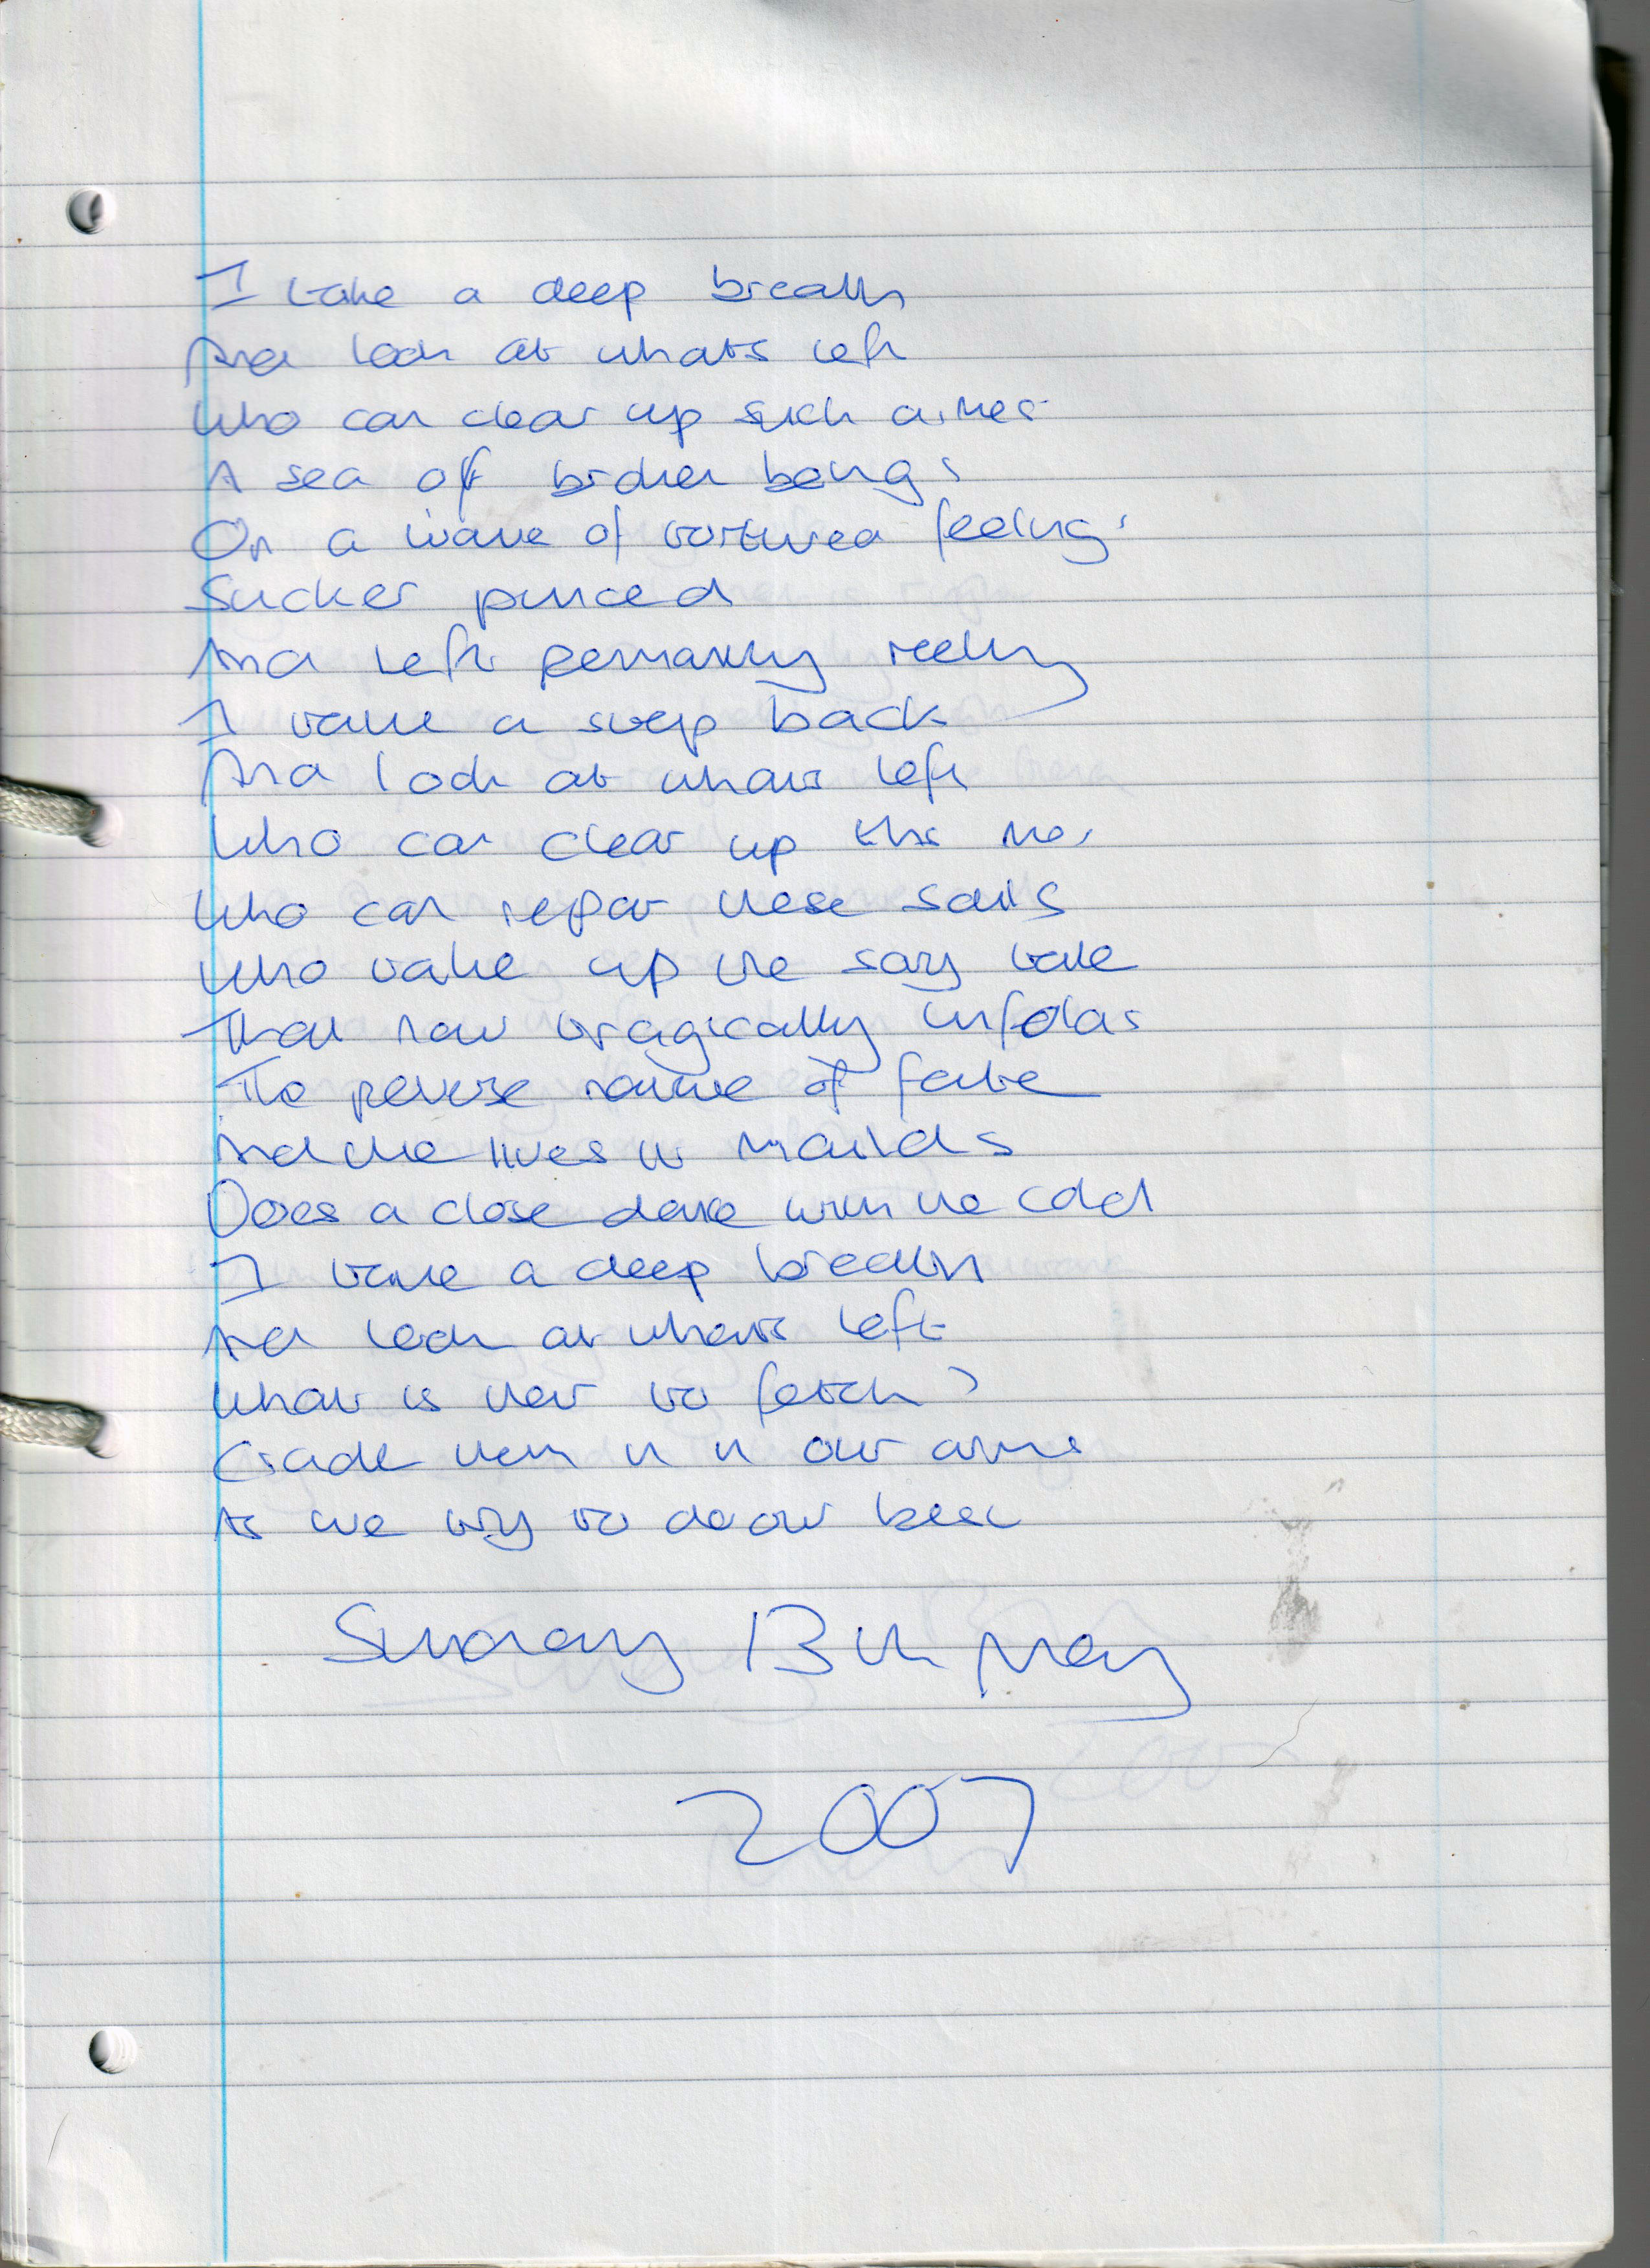 I take a deep breath
And look at whats left
Who can clear up such a mess
A sea of broken beings
On a wave of tortured feelings
Sucker punced
And left permantly reeling
I take a step back
And look at whats left
Who can clear up this mes
Who can repair these souls
Who take up the story
That now tragically unfolds
The perverse nature of fate
And the lives it
Does a close dance with the cold
I take a deep breath
And look at whats left
What is ther to fetch?
Cradle them in in our arms
As we try to do our best
Sunday 13th May
2007